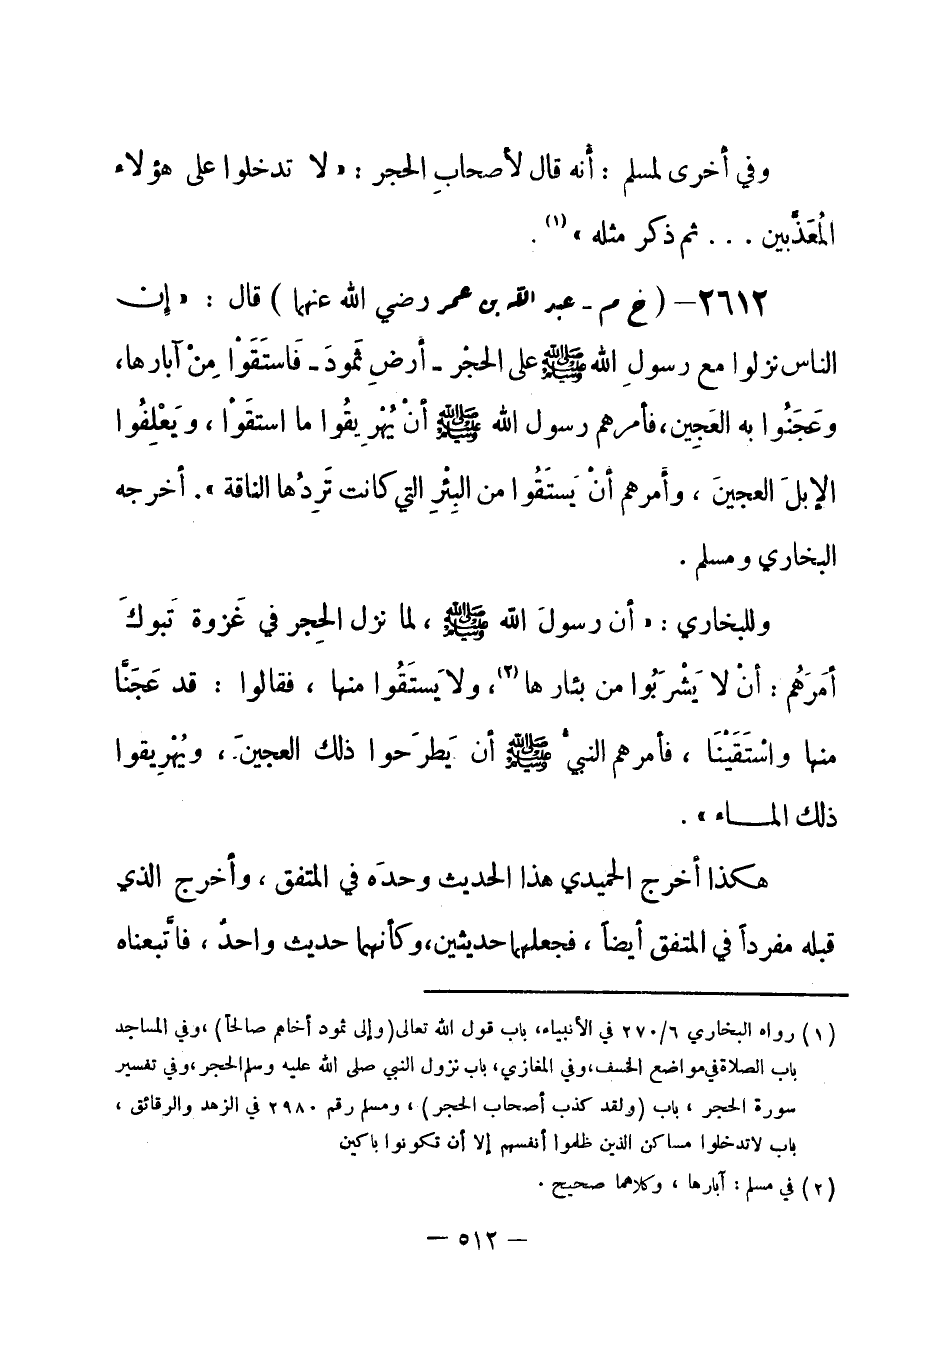 وفي أخرى لمسلم : أنه قال لأصحابِ الحجر : « لا تدخلوا على هؤلاء
المُعَذَّبين . . . ثم ذكر مثله » (١) .
٢٦١٢ – ( خ م ـ عبد الله بن عمر رضي الله عنهما ) قال : « إن
الناس نزلوا مع رسولِ الله ﷺ على الحجْر ـ أرضِ ثمودَ ـ فَاستَقَوْا مِنْ آبارها،
وعَجَنُوا به العَجِين،فأمرهم رسول الله ﷺ أنْ يُهْرِيقُوا ما استقَوْا ، ويَعْلِفُوا
الإبلَ العجينَ ، وأمرهم أنْ يَستَقُوا من البِئْرِ التي كانت تَرِدُها الناقة » . أخرجه
البخاري ومسلم .
وللبخاري : « أن رسولَ الله ﷺ ، لما نزل الحِجر في غَزوة تَبوكَ
أمَرَهُم : أنْ لا يَشْرَبُوا من بئار ها(٢)، ولا يَستَقُوا منها ، فقالوا : قد عَجَنَّا
منها واسْتَقَيْنَا ، فأمرهم النبيُّ ﷺ أن يَطرَحوا ذلك العجينَ ، ويُهْرِيقوا
ذلك المـــاء » .
هكذا أخرج الحميدي هذا الحديث وحدَه في المتفق ، وأخرج الذي
قبله مفرداً في المتفق أيضاً ، فجعلهما حديثين،وكأنهما حديث واحدٌ ، فاتَّبعناه
(١) رواه البخاري ٦/ ٢٧٠ في الأنبياء، باب قول الله تعالى(وإلى ثمود أخاهم صالحاً) ،وفي المساجد
باب الصلاة في مواضع الخسف،وفي المغازي، باب نزول النبي صلى الله عليه وسلم الحجر،وفي تفسير
سورة الحجر ، باب (ولقد كذب أصحاب الحجر ) ، ومسلم رقم ٢٩٨٠ في الزهد والرقائق ،
باب لاتدخلوا مساكن الذين ظلموا أنفسهم إلا أن تكونوا باكين
(٢) في مسلم : آبارها ، وكلاهما صحيح .
– ٥١٢ –